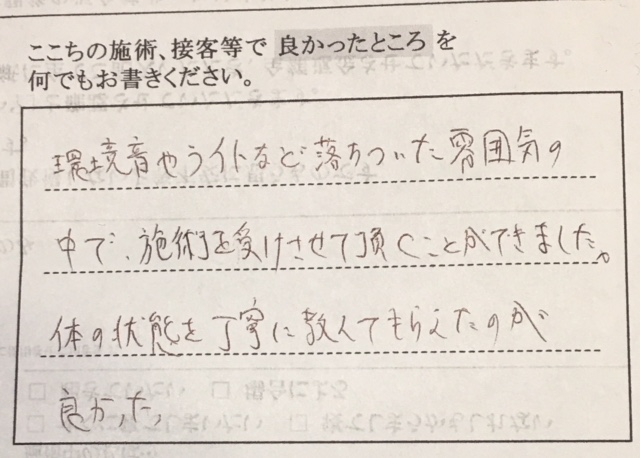 ここちの施術、接客等で 良かったところ を
何でもお書きください。
環境音やライトなど落ちついた雰囲気の
中で、施術を受けさせて頂くことができました。
体の状態を丁寧に教えてもらえたのが
良かった。